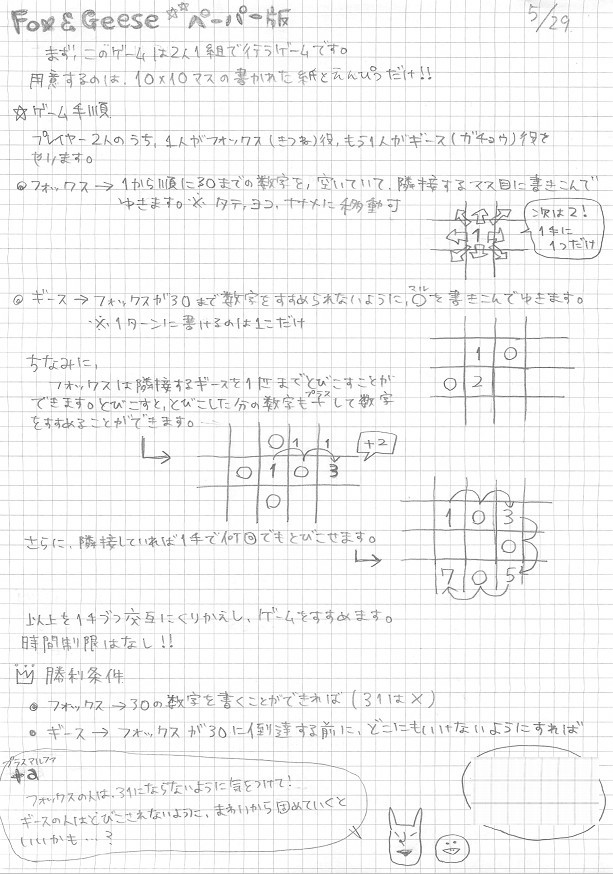 Fox & Geese ☆☆ ペーパー版
5/29
まず、このゲームは2人1組で行うゲームです。
用意するのは、10×10マスの書かれた紙とえんぴつだけ!!
☆ゲーム手順
プレイヤー2人のうち、1人がフォックス(きつね)役、もう1人がギース(ガチョウ)役を
やります。
◎フォックス→1から順に30までの数字を、空いていて、隣接するマス目に書きこんで
ゆきます。※タテ、ヨコ、ナナメに移動可
1
次は2!
1手に
1つだけ
◎ギース→フォックスが30まで数字をすすめられないように、○を書きこんでゆきます。
マル
※1ターンに書けるのは1こだけ
1 ○
○ 2
ちなみに、
フォックスは隣接するギースを1匹までとびこすことが
できます。とびこすと、とびこした分の数字も+して数字
プラス
をすすめることができます。
○ 1 1
+2
○ 1 ○ 3
○
さらに、隣接していれば1手で何回でもとびこせます。
1 ○ 3
○
7 ○ 5
以上を1手づつ交互にくりかえし、ゲームをすすめます。
時間制限はなし!!
勝利条件
◎フォックス→30の数字を書くことができれば(31は×)
◎ギース→フォックスが30に到達する前に、どこにもいけないようにすれば
プラスアルファ
+a
フォックスの人は、31にならないように気をつけて!
ギースの人はとびこされないように、まわりから固めていくと
いいかも…?